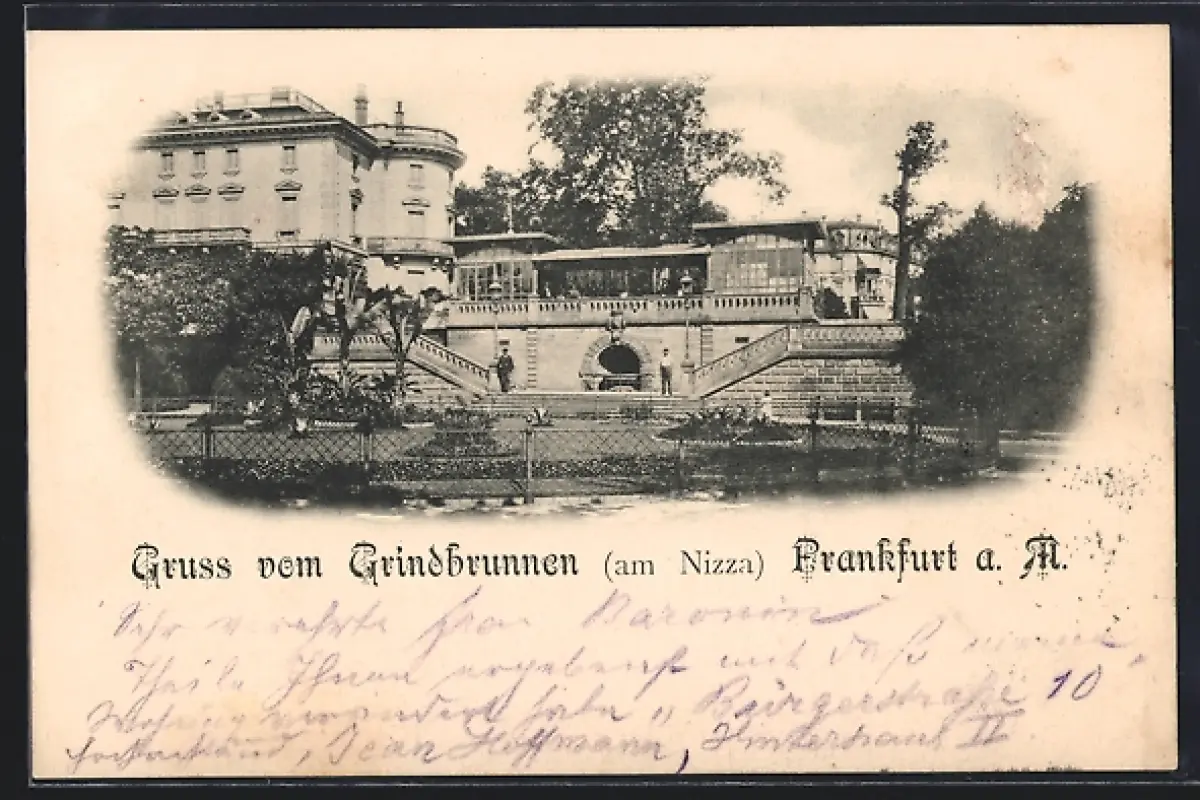 Gruss vom Grindbrunnen (am Nizza) Frankfurt a. M.
Sehr verehrte Frau Baronin
Theile Ihnen ergebenst mit daß meine
Wohnung verändert habe „ Bürgerstraße 10
Jean Hoffmann, Hinterhaus II